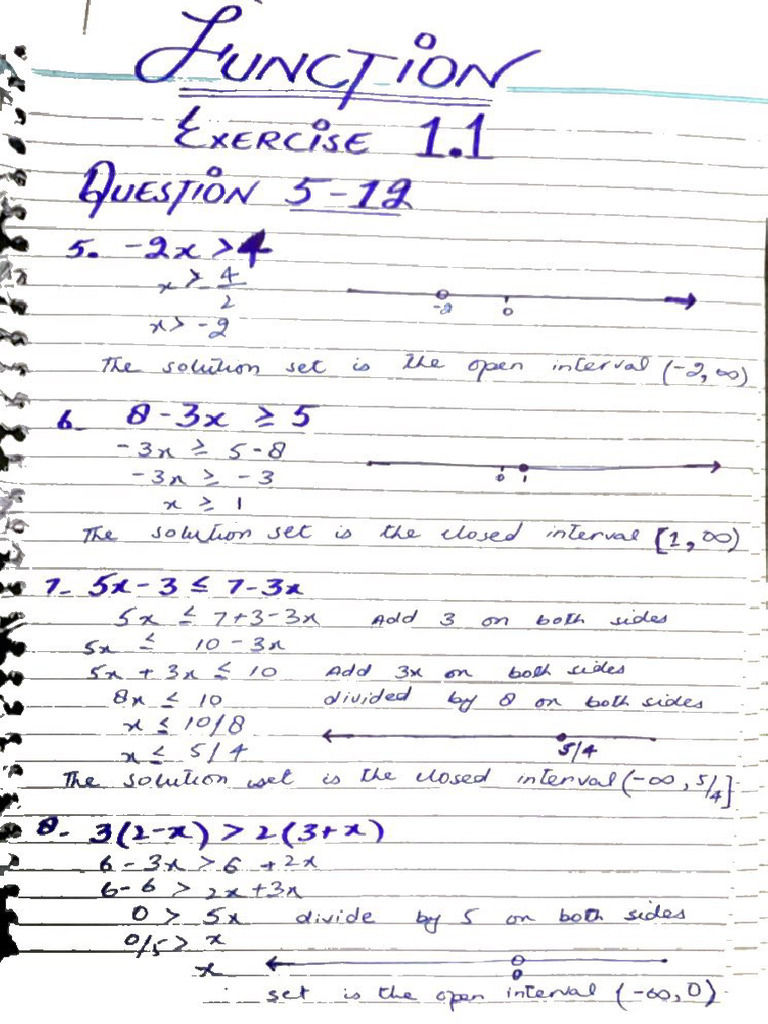 FUNCTION
EXERCISE 1.1
QUESTION 5-12
5. -2x > 4
x > 4/2
-2 0
x > -2
The solution set is the open interval (-2, ∞)
6. 8 - 3x ≥ 5
-3x ≥ 5 - 8
-3x ≥ -3
0 1
x ≥ 1
The solution set is the closed interval [1, ∞)
7- 5x - 3 ≤ 7 - 3x
5x ≤ 7 + 3 - 3x Add 3 on both sides
5x ≤ 10 - 3x
5x + 3x ≤ 10 Add 3x on both sides
8x ≤ 10 divided by 8 on both sides
x ≤ 10/8
x ≤ 5/4 5/4
The solution set is the closed interval (-∞, 5/4]
8. 3(2-x) > 2(3+x)
6 - 3x > 6 + 2x
6 - 6 > 2x + 3x
0 > 5x divide by 5 on both sides
0/5 > x
x 0
set is the open interval (-∞, 0)